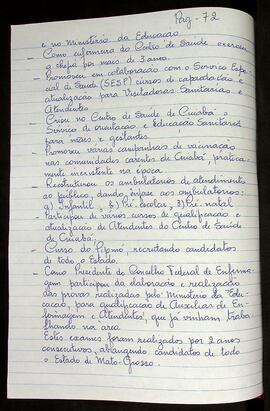 Pag - 72
e no Ministério da Educação
- Como enfermeira do Centro de Saúde exerceu
a chefia por mais de 3 anos
- Promoveu em colaboração com o Serviço Espe
cial de Saúde (SESP) cursos de capacitação e
atualização para Visitadoras Sanitárias e
Atendentes
- Criou no Centro de Saúde de Cuiabá o
Serviço de orientação e Educação Sanitária
para mães e gestantes
- Promoveu várias campanhas de vacinação
nas comunidades carentes de Cuiabá, pratica-
mente inexistente na época
- Reestruturou os ambulatórios de atendimento
ao público, dando ênfase aos ambulatórios:
1) Infantil, 2) Pré. escolar, 3) Pré. natal
Participou de vários cursos de qualificação e
atualização de Atendentes do Centro de Saúde
de Cuiabá;
- Curso do Pipmo, recrutando candidatos
de todo o Estado.
- Como Presidente do Conselho Federal de Enferma-
gem participou da elaboração e realização
das provas realizadas pelo Ministério da Edu-
cação, para qualificação de Auxiliares de En
fermagem e Atendentes, que já vinham traba
lhando na área
Estes exames foram realizados por 2 anos
consecutivos, abrangendo candidatos de todo
o Estado de Mato-Grosso.